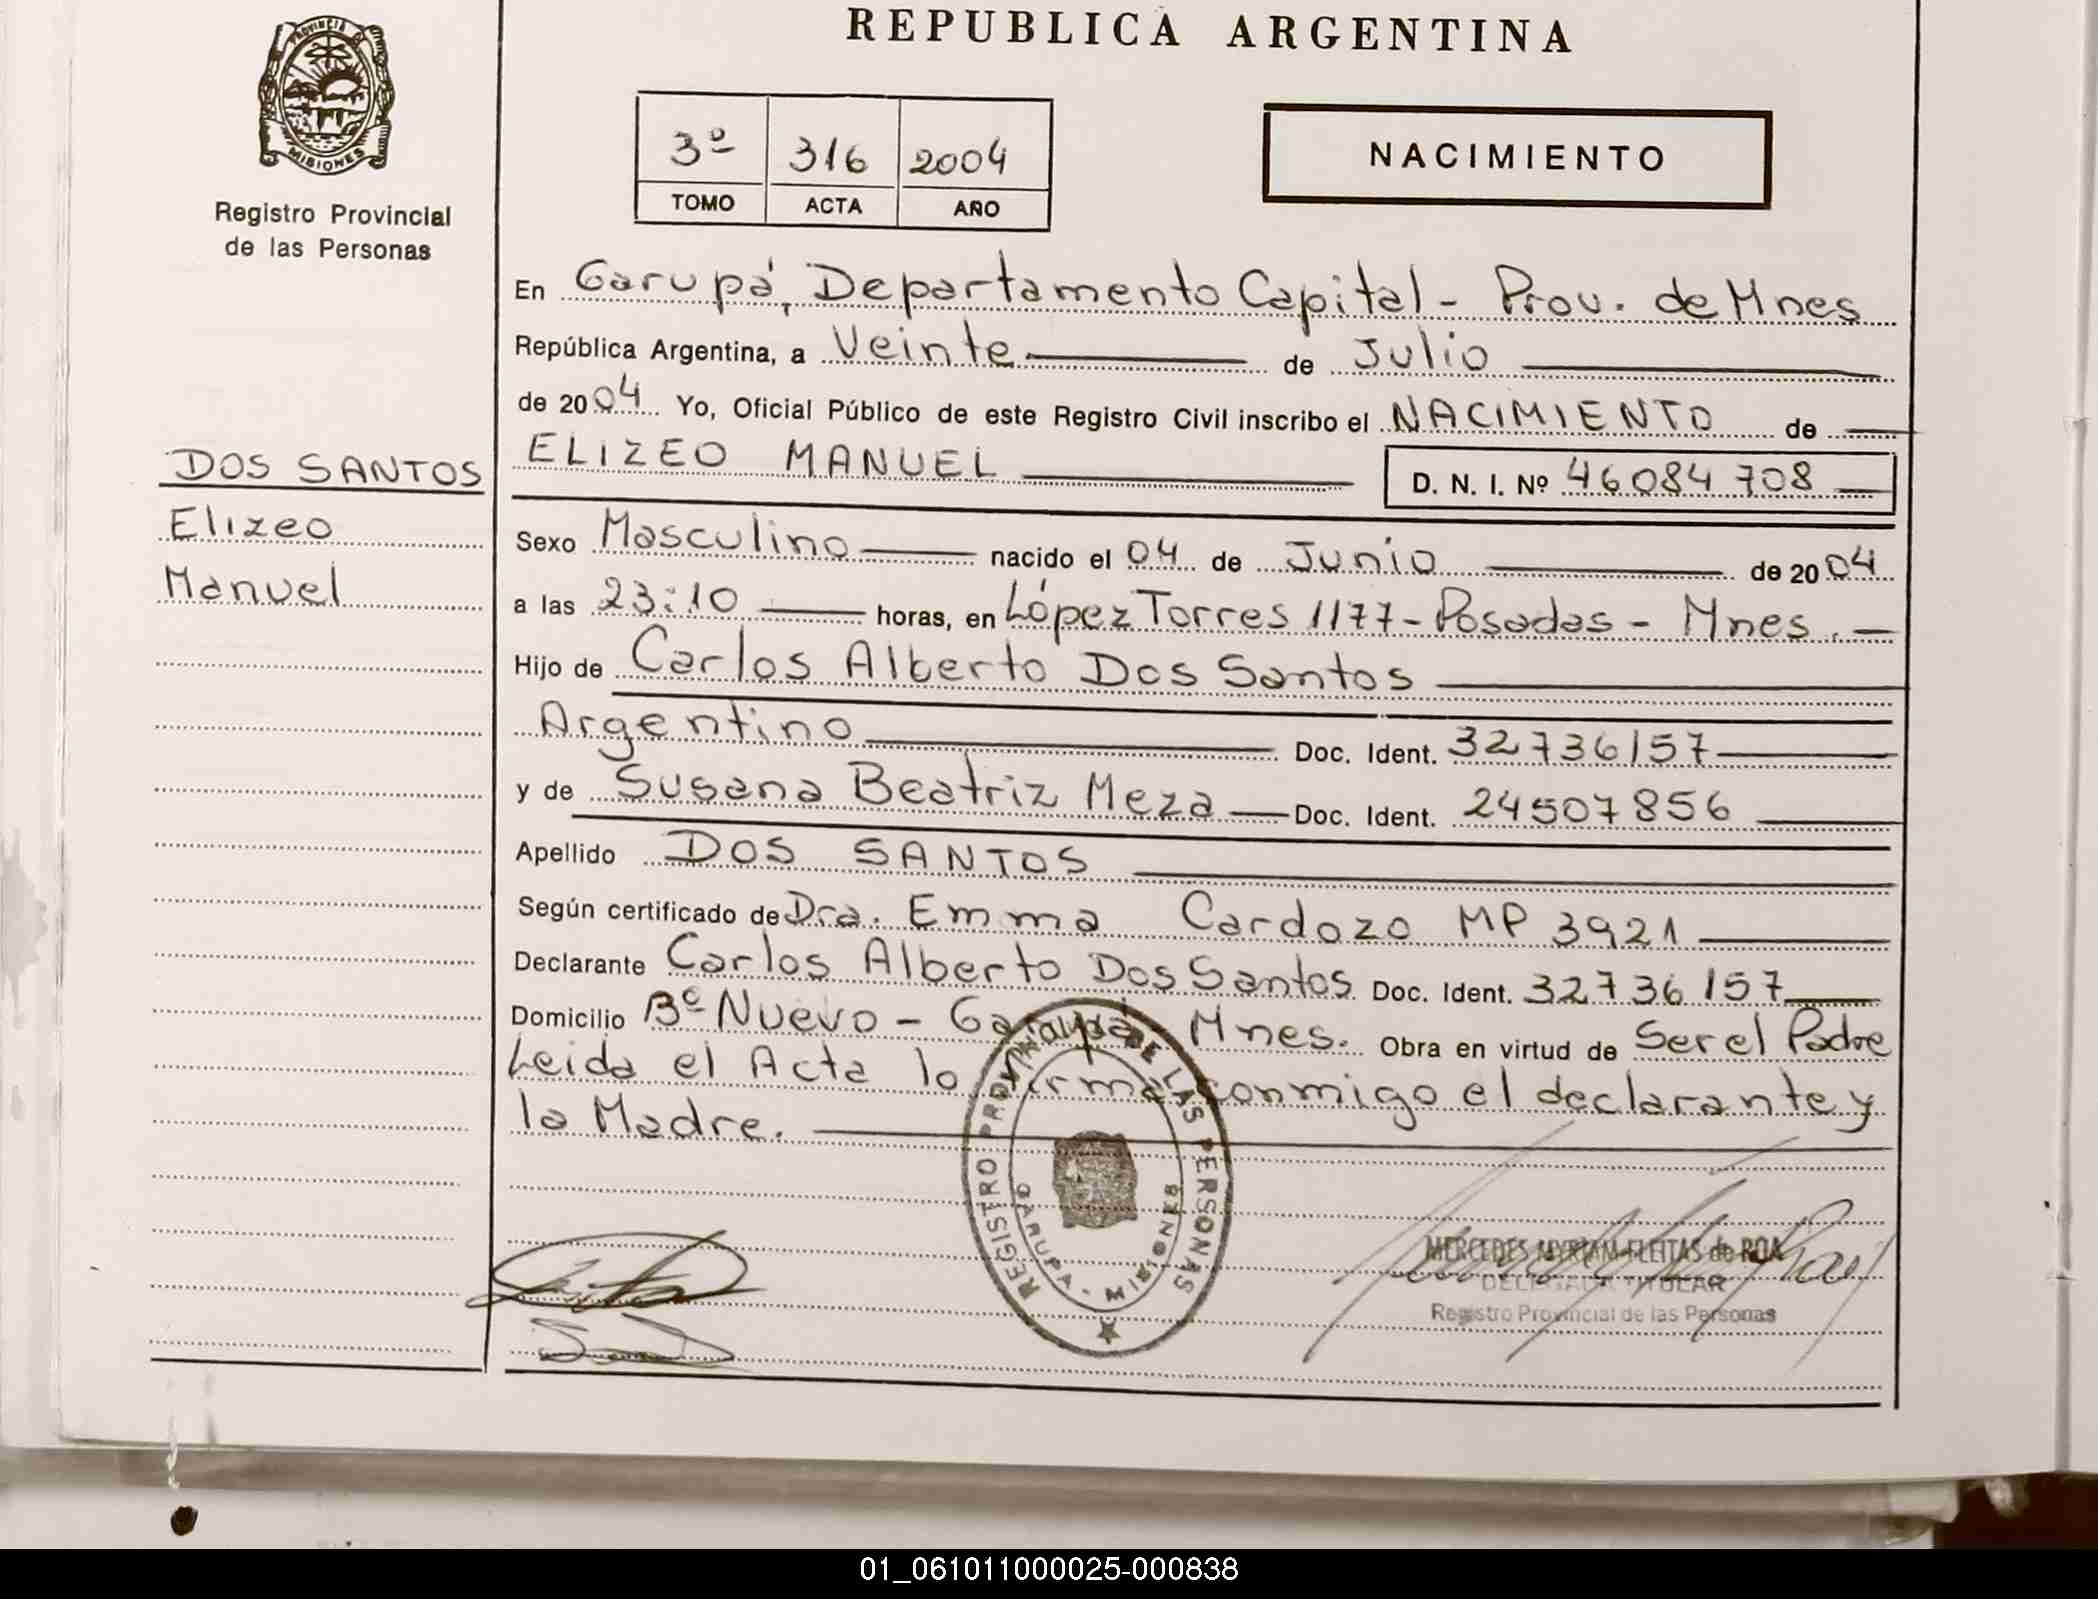 REPUBLICA ARGENTINA
PROVINCIA DE
MISIONES
Registro Provincial
de las Personas
3º 316 2004
TOMO ACTA AÑO
NACIMIENTO
En Garupá, Departamento Capital - Prov. de Mnes
República Argentina, a Veinte de Julio
de 2004 Yo, Oficial Público de este Registro Civil inscribo el NACIMIENTO de
ELIZEO MANUEL D. N. I. Nº 46084708
DOS SANTOS
Elizeo
Manuel
Sexo Masculino nacido el 04 de Junio de 2004
a las 23:10 horas, en López Torres 1177 - Posadas - Mnes. -
Hijo de Carlos Alberto Dos Santos
Argentino Doc. Ident. 32736157
y de Susana Beatriz Meza Doc. Ident. 24507856
Apellido DOS SANTOS
Según certificado de Dra. Emma Cardozo MP 3921
Declarante Carlos Alberto Dos Santos Doc. Ident. 32736157
Domicilio Bº Nuevo - Garupá - Mnes. Obra en virtud de Ser el Padre
Leida el Acta lo firma conmigo el declarante y
la Madre.
REGISTRO PROVINCIAL DE LAS PERSONAS
GARUPA - MISIONES
MERCEDES MYRIAM FLEITAS de ROA
DELEGADA TITULAR
Registro Provincial de las Personas
01_061011000025-000838